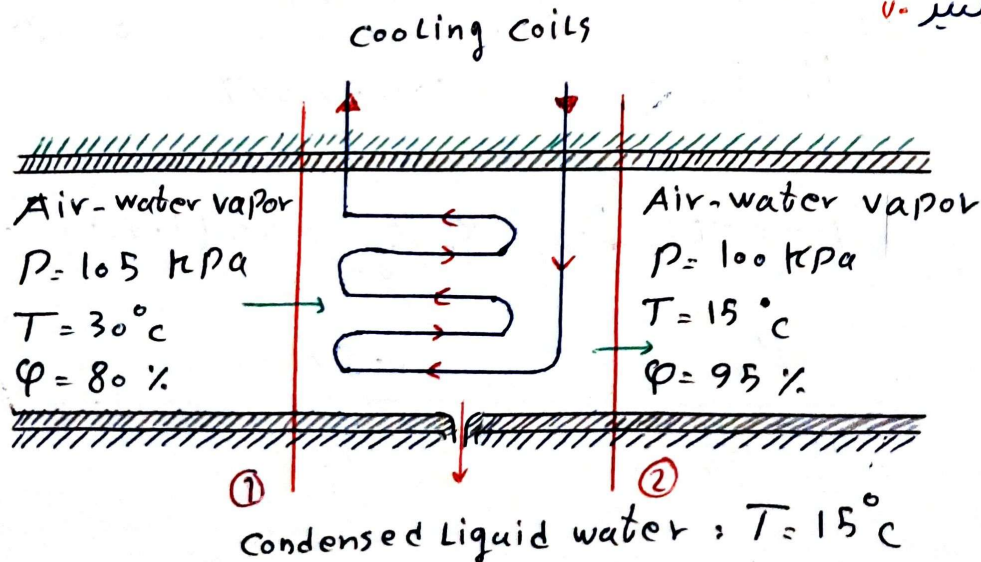 cooling coils
Air-water vapor
P= 105 KPa
T = 30°c
φ = 80 %
Air-water vapor
P= 100 KPa
T= 15 °c
φ= 95 %
①
②
Condensed Liquid water : T= 15°c